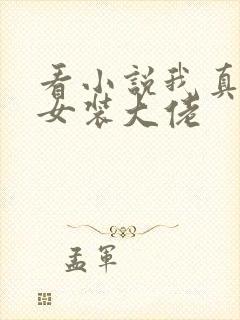 看小説我真
女裝大佬
孟軍